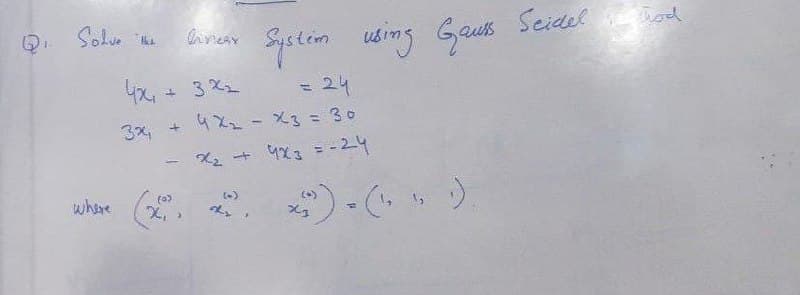 Q1. Solve the linear System using Gauss Seidel
4x₁ + 3x₂ = 24
3x₁ + 4x₂ - x₃ = 30
- x₂ + 4x₃ = -24
where (x₁⁽⁰⁾, x₂⁽⁰⁾, x₃⁽⁰⁾) = (1, 1, 1).